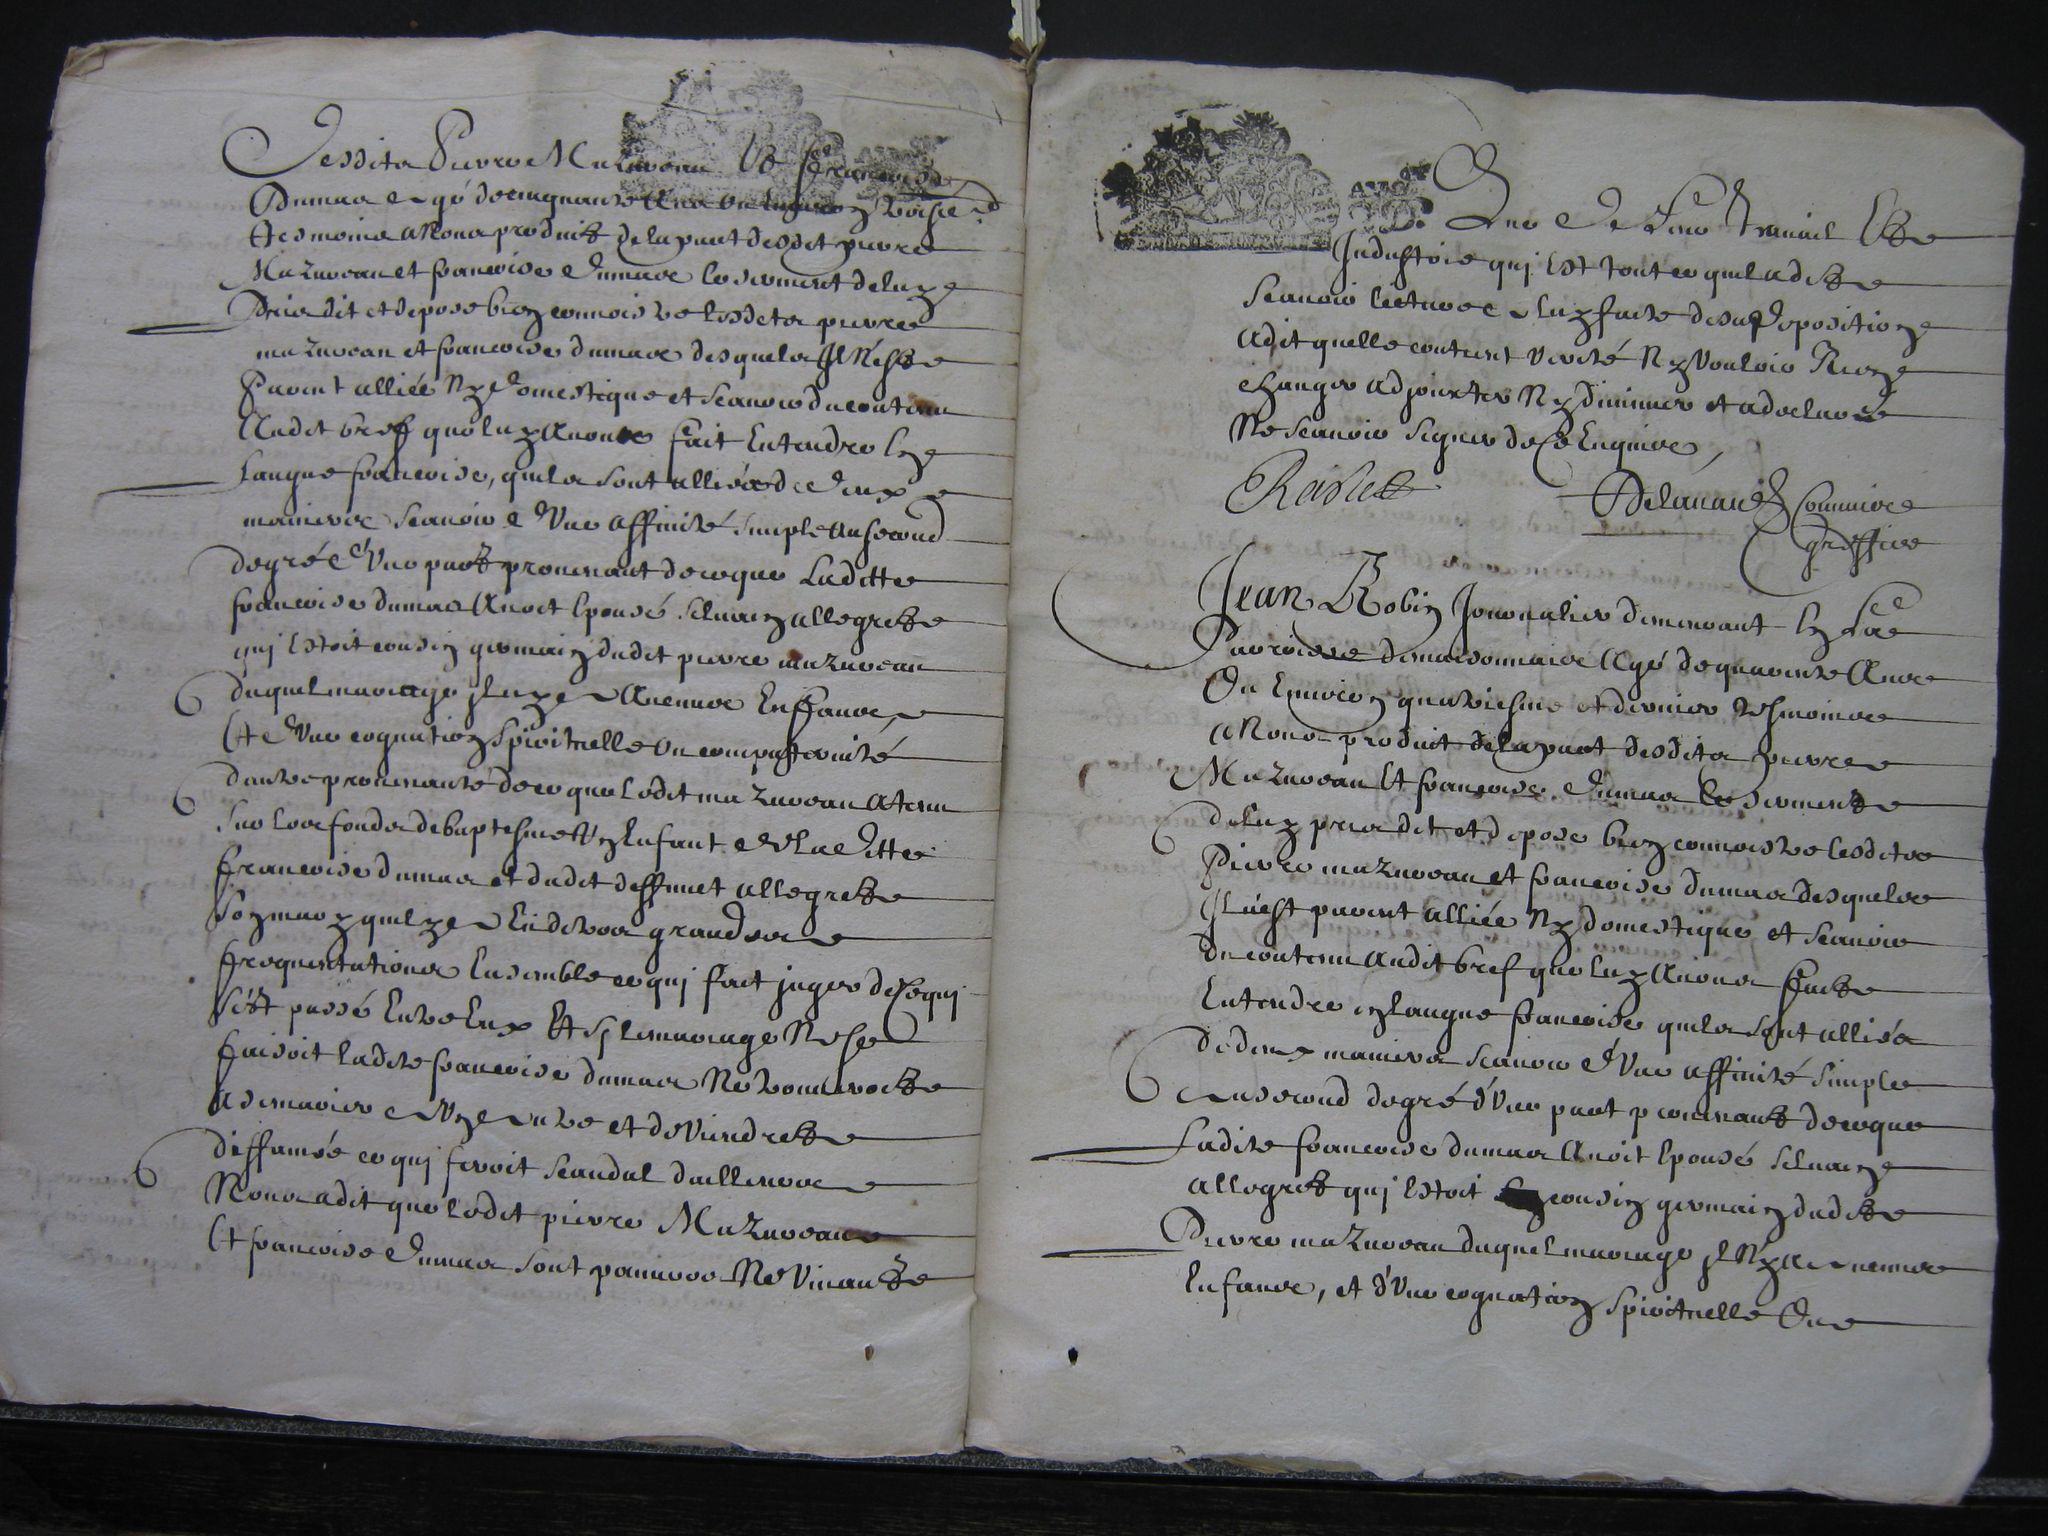 desdits Pierre Mazureau Et francoise
Dumas agé de cinquante Ans ou enuiron troisie.
tesmoins a Nous produit de la part desdit pierre
Mazureau et francoise dumas le serment de luy
Pris dit et depose bien connoistre lesdits pierre
mazureau et francoise dumas desquels Il N'est
Parent alliée Ny domestique et scauoir du contenu
Audit bref que luy Auons fait Entendre En
Langue francoise, quils sont alliés de deux
manieres scauoir d'Vne affinité simple au second
degré d'Vne part prouenant de ce que Laditte
francoise dumas Auoit Epousé siluain allegret
qui Estoit cousin germain dudit pierre mazureau
duquel mariage il ny a Aucuns Enffans,
Et d'Vne cognation Spirituelle ou compaternité
dautre prouenante de ce que Ledit mazureau a tenu
sur Les fonds de baptesme Vn Enfant de La ditte
francoise dumas et dudit deffunct allegret
son mary quil y a Eu de tres grandes
frequentations Ensemble ce qui fait juger de ce qui
s'est passé Entre Eux Et sy le mariage Ne se
faisoit Ladite francoise dumas Ne trouueroit
a se marier a Vn autre et deViendret
diffamée ce qui seroit scandal dailleurs
Nous a dit que Ledit pierre Mazureau
Et francoise dumas sont pauures Ne Viuant
Que de Leur trauail Et
Industrie qui Est tout ce quil a dit
scauoir lecture a luy faite de sa deposition
a dit quelle contient Verité Ny Vouloir Rien
changer adjouxter Ny diminuer et a declaré
Ne scauoir signer de ce Enquis,
Delanaud Commis
greffier
Jean Robin Journalier demeurant En La
Parroisse de maisonnais Agé de quarente Ans
Ou Enuiron quatriesme et dernier tesmoins
a Nous produit de la part desdits pierre
Mazureau Et francoise dumas Le serment
de luy pris dit et depose bien connoistre lesdits
Pierre mazureau et francoise dumas desquels
Il n'est parent alliée Ny domestique et scauoir
du contenu audit bref que luy Auons fait
Entendre en langue francoise quils sont alliés
de deux manieres scauoir d'Vne affinité simple
au second degré d'Vne part prouenant de ce que
Ladite francoise dumas Auoit Epousé siluain
allegret qui Estoit cousin germain dudit
Pierre mazureau duquel mariage il Ny a aucuns
Enfans, et d'Vne cognation Spirituelle Ou